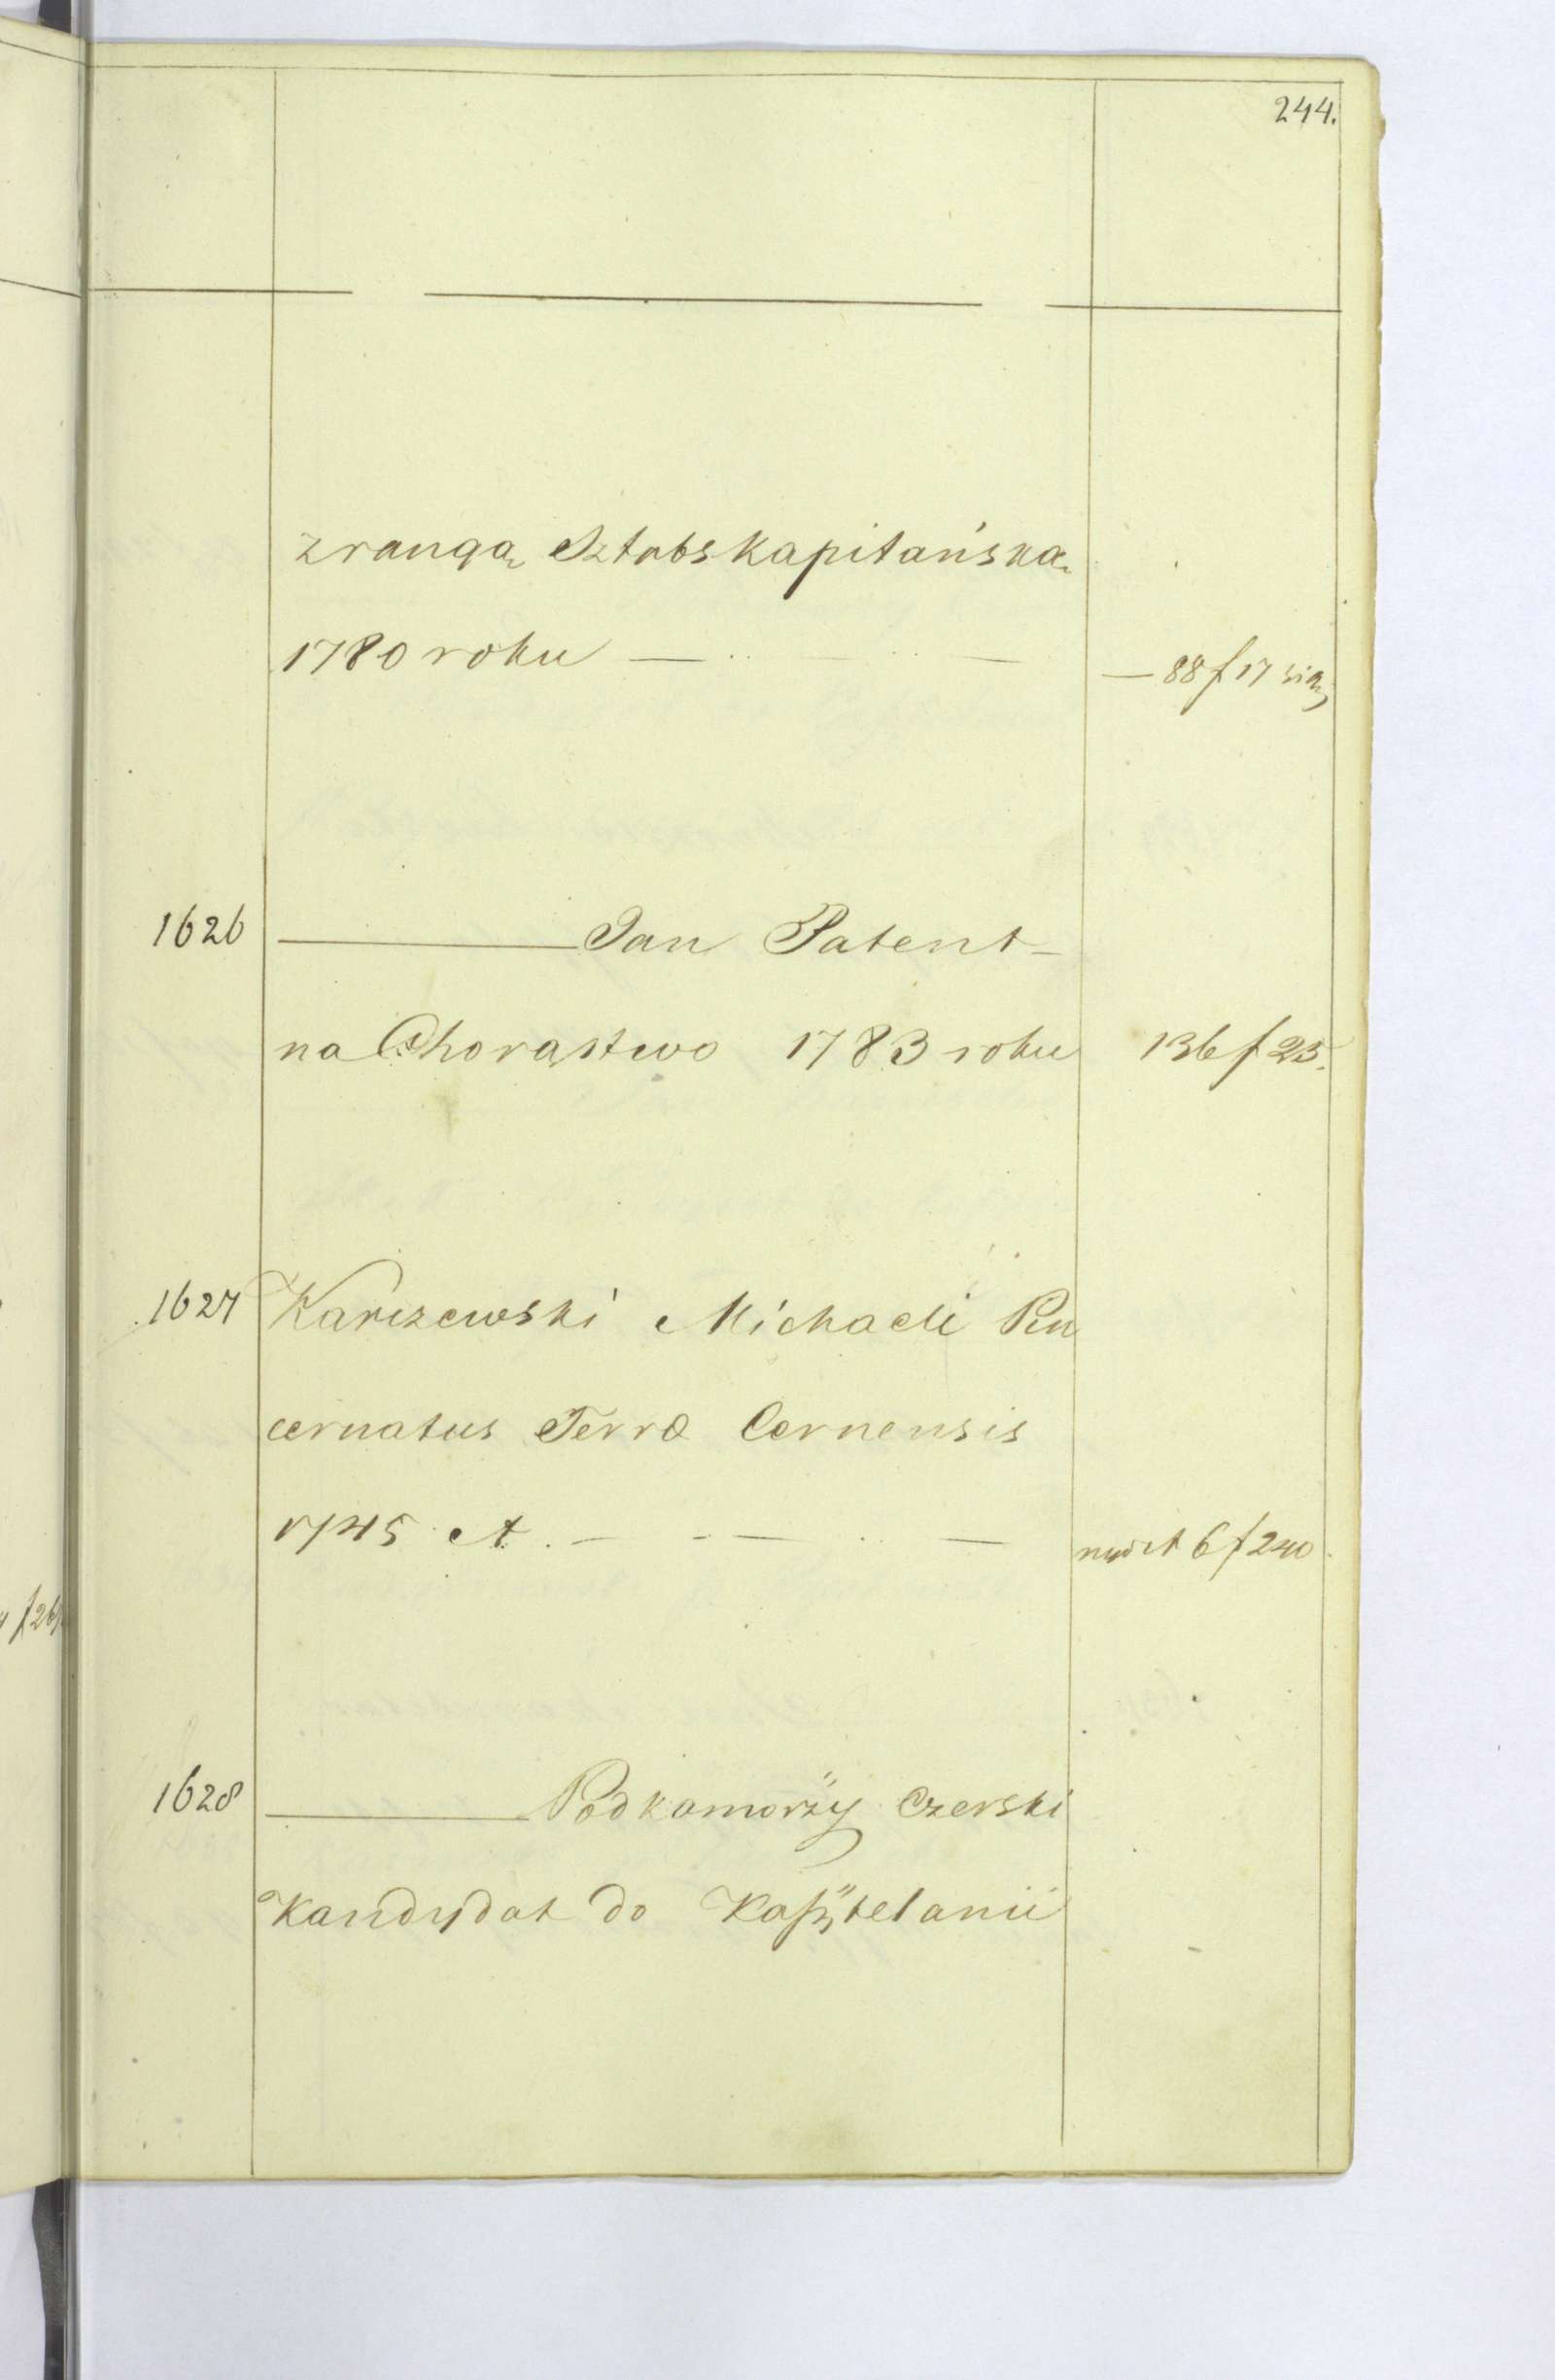 244.
z rangą Sztabskapitańską
1780 roku — — — 88 f 17
1626 ——— Jan Patent-
na Chorąstwo 1783 roku 136 f 23.
1627 Karczewski Michaeli Pin
cernatus Terræ Cernensis
1745 A. — - — — 6 f 240
1628 ——— Podkomorzÿ Czerski
Kandydat do Kasztelanii